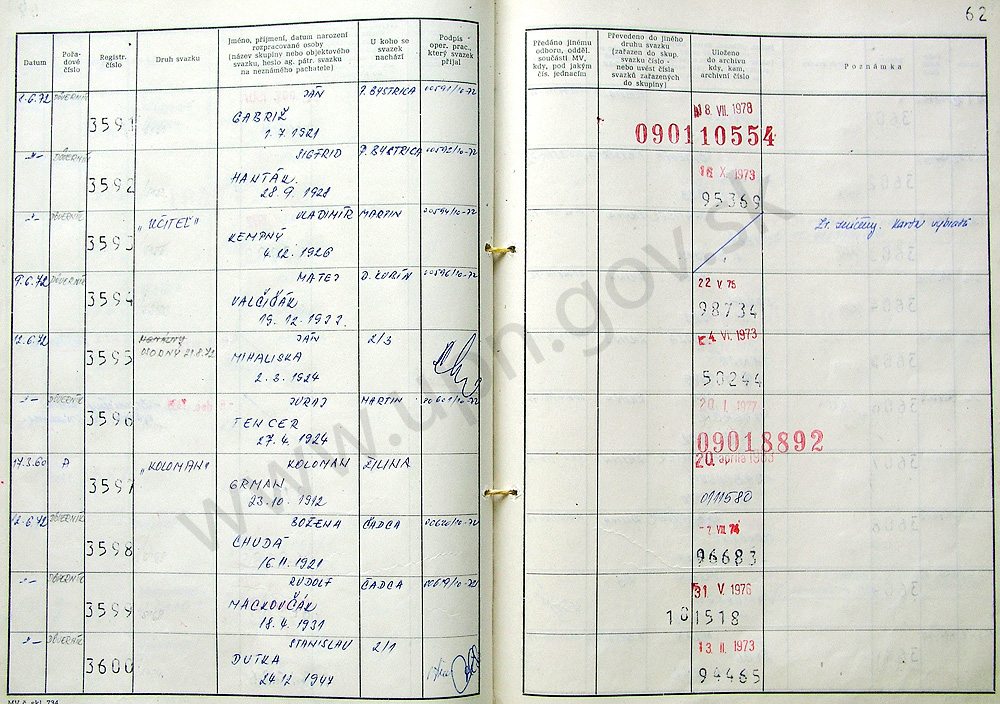 62
Datum
Pořadové číslo
Registr. číslo
Druh svazku
Jméno, příjmení, datum narození rozpracované osoby (název skupiny nebo objektového svazku, heslo ag. pátr. svazku na neznámého pachatele)
U koho se svazek nachází
Podpis oper. prac., který svazek přijal
Předáno jinému odboru, odděl. součásti MV, kdy, pod jakým čís. jednacím
Převedeno do jiného druhu svazku (zařazen do skup. svazku číslo - nebo uvést čísla svazků zařazených do skupiny)
Uloženo do archivu kdy, kam, archivní číslo
Poznámka
2.6.72 DŮVERNÍK 3591 JÁN P. BYSTRICA
GABRIŽ
1.7.1921
18. VII. 1978
090110554
-"- DŮVERNÍK 3592 SIGFRID P. BYSTRICA
HANTÁK
28.9.1928
X. 1973
95369
-"- DŮVERNÍK 3593 „UČITEĽ" VLADIMÍR MARTIN
KEMPNÝ
4.12.1926
9.6.72 DŮVERNÍK 3594 MATEJ D. KUBÍN
VALČIČÁK
19.12.1933
22 V. 75
98734
12.6.72 3595 21.8.72 JÁN 2/3
MIHALISKA
2.3.1924
4. VI. 1973
50244
-"- DŮVERNÍK 3596 JURAJ MARTIN
TENCER
27.4.1924
20. I. 1977
09018892
17.3.60 A 3597 „KOLOMAN" KOLOMAN ŽILINA
GRMAN
23.10.1912
20. apríla
0111580
12.6.72 DŮVERNÍK 3598 BOŽENA ČADCA
CHUDÁ
16.11.1921
VIII. 74
96683
-"- DŮVERNÍK 3599 RUDOLF ČADCA
MACKOVČÁK
18.4.1931
31. V. 1976
101518
-"- DŮVERNÍK 3600 STANISLAV 2/1
DUTKA
24.12.1944
13. II. 1973
94465
www.upn.gov.sk